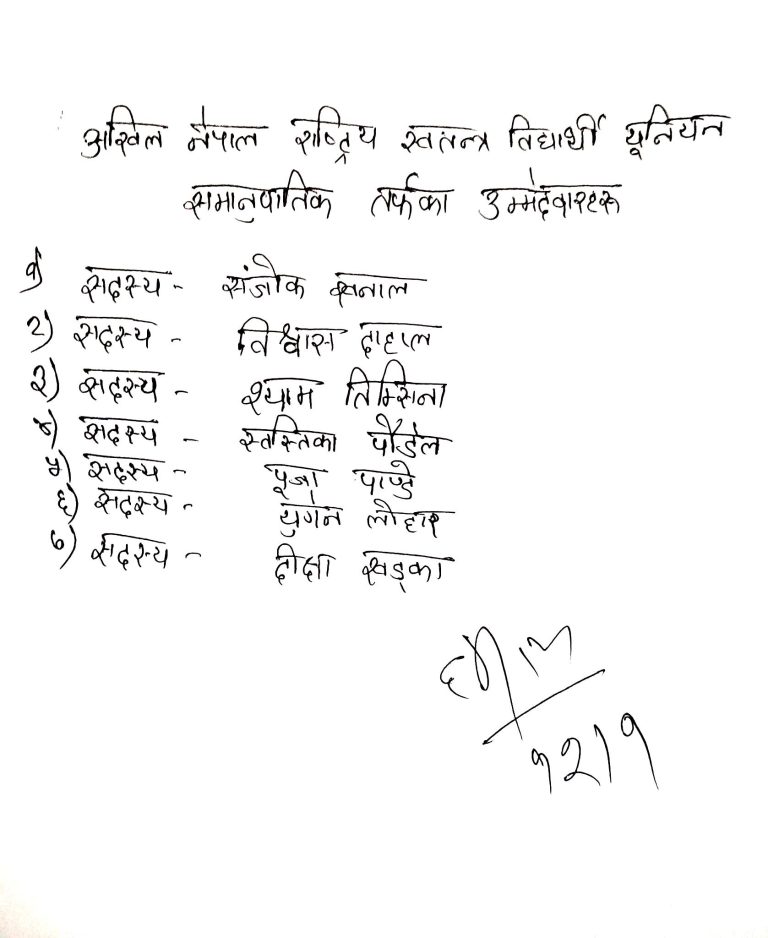 अखिल नेपाल राष्ट्रिय स्वतन्त्र विद्यार्थी यूनियन
समानुपातिक तर्फका उम्मेदवारहरू
१) सदस्य - संजोक खनाल
२) सदस्य - विश्वास दाहाल
३) सदस्य - श्याम तिम्सिना
४) सदस्य - स्वस्तिका पौडेल
५) सदस्य - पूजा पाण्डे
६) सदस्य - युगेन लोहार
७) सदस्य - दीक्षा खड्का